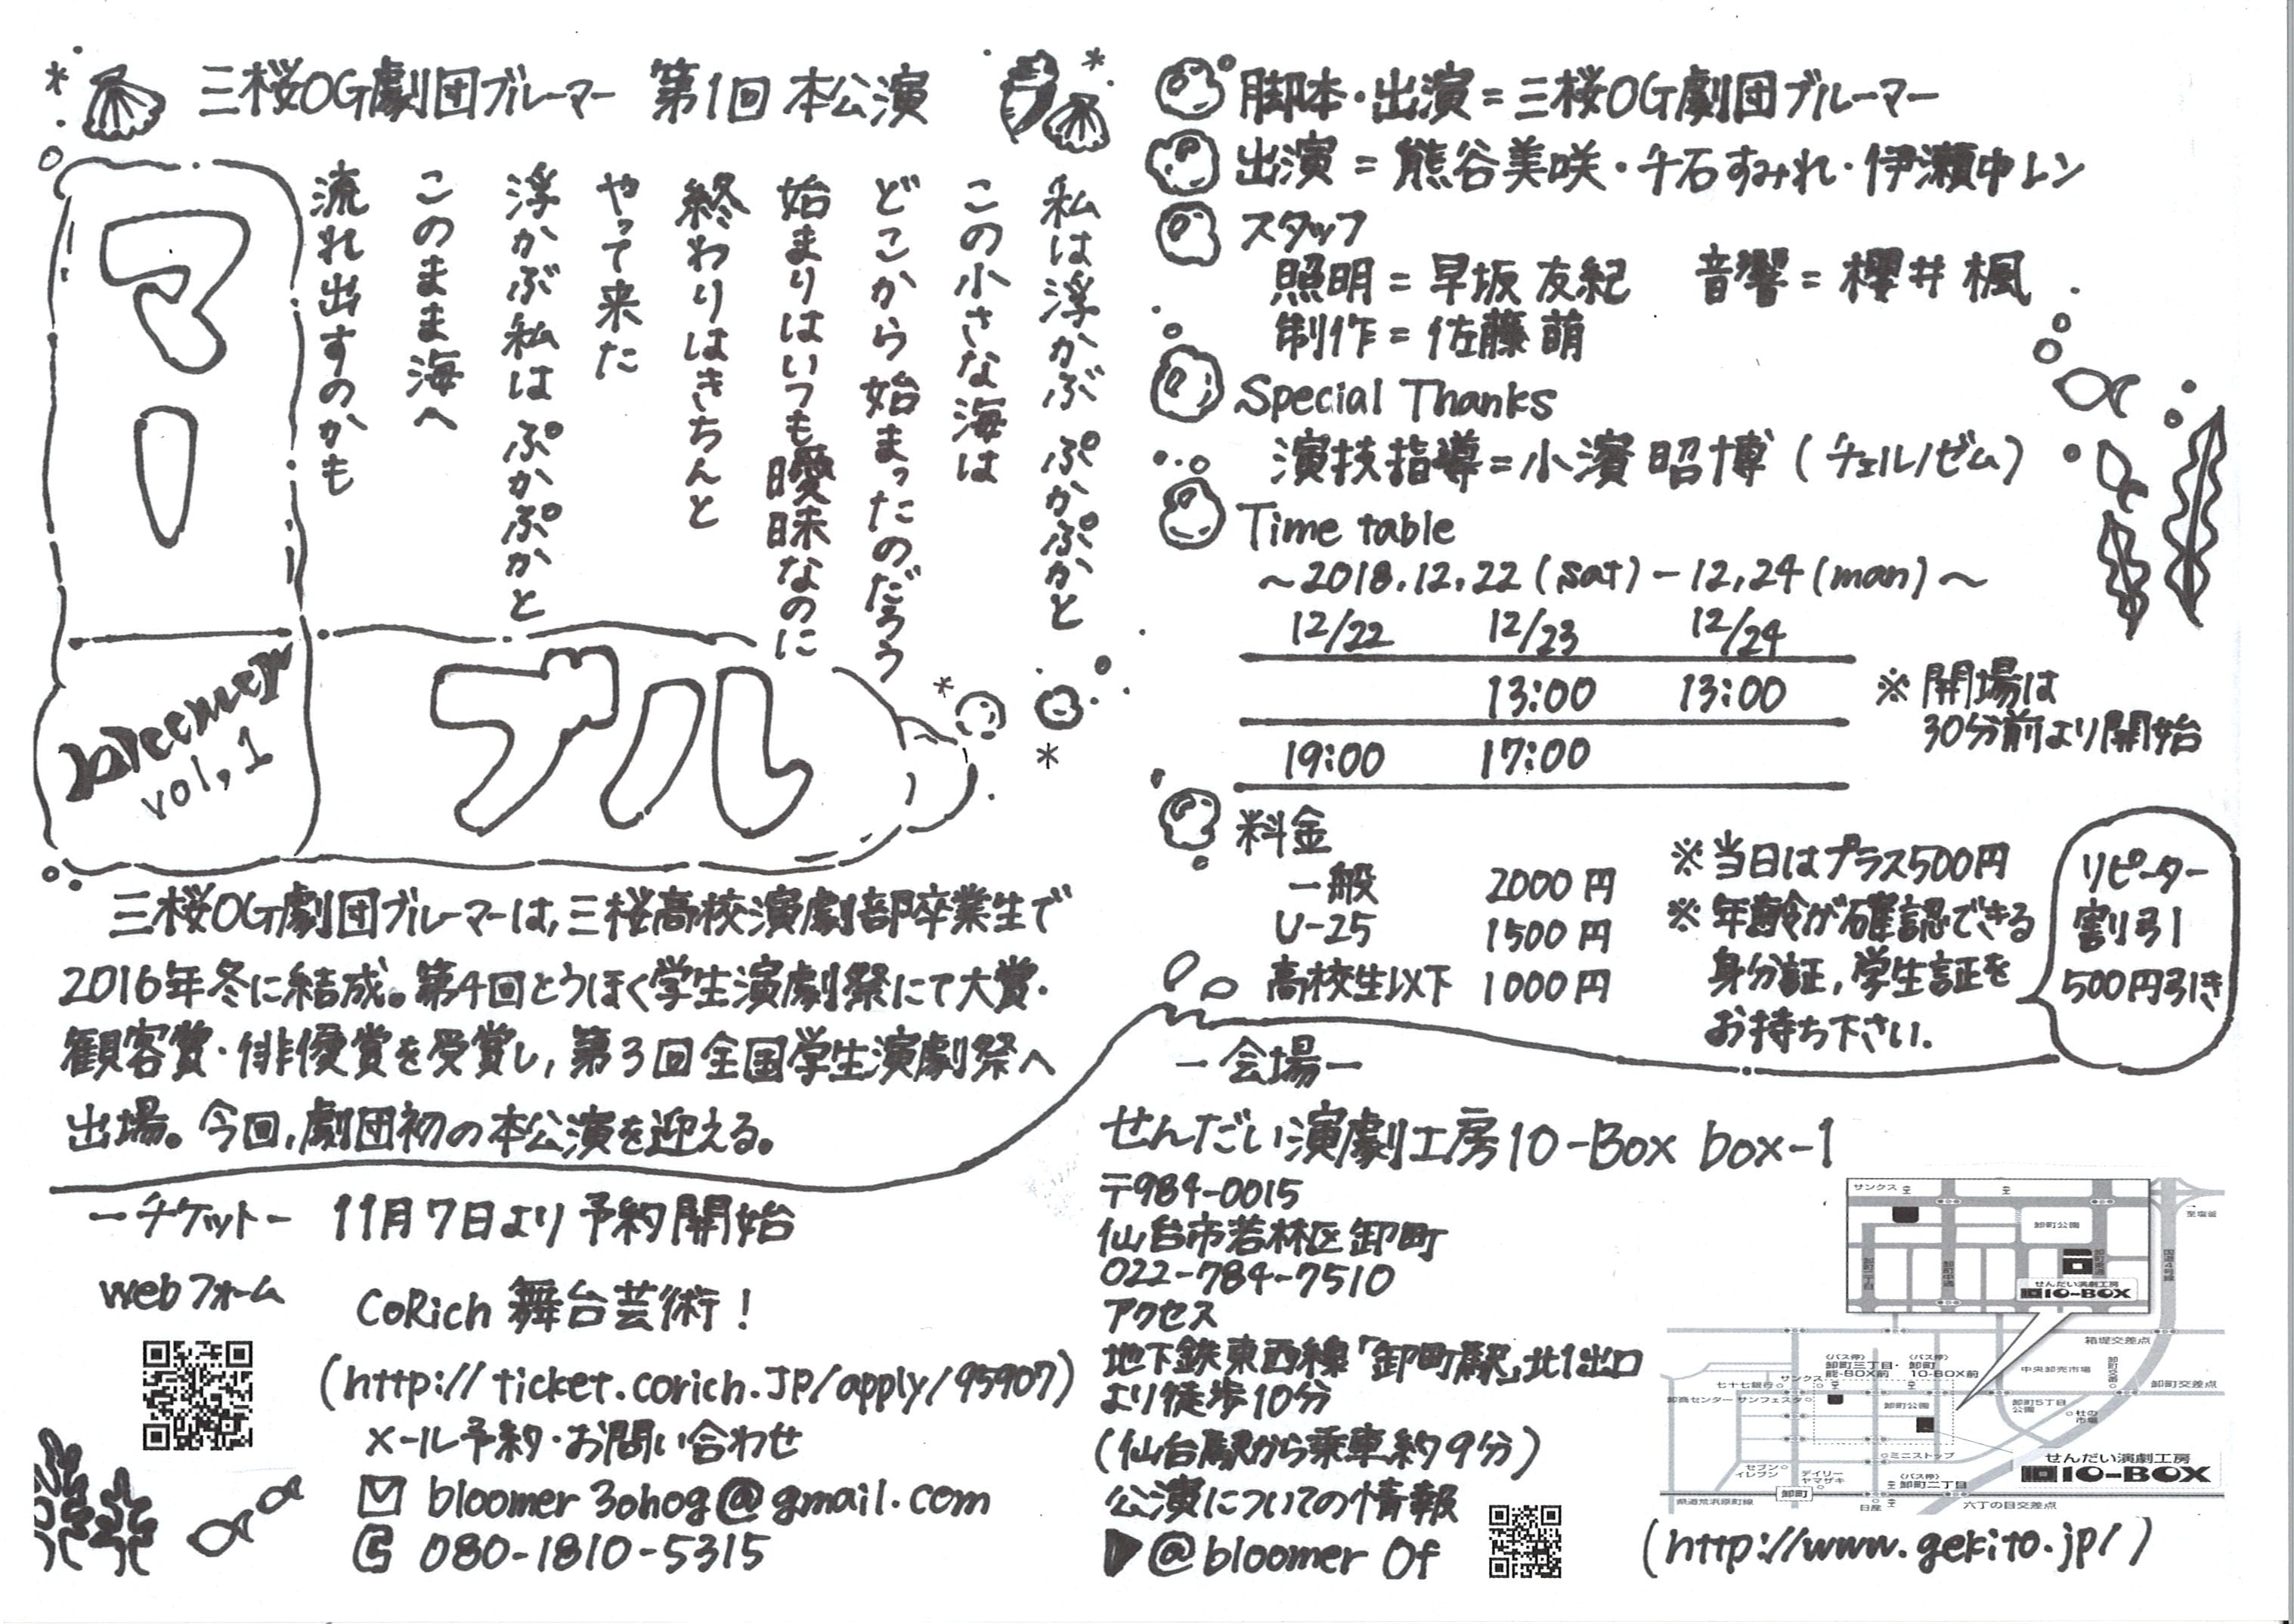 三桜OG劇団ブルーマー 第1回 本公演
私は浮かぶ ぷかぷかと
この小さな海は
どこから始まったのだろう
始まりはいつも曖昧なのに
終わりはきちんと
やって来た
浮かぶ私は ぷかぷかと
このまま海へ
流れ出すのかも
マー
ブル
bleemer
vol,1
三桜OG劇団ブルーマーは,三桜高校演劇部卒業生で
2016年冬に結成。第4回とうほく学生演劇祭にて大賞・
観客賞・俳優賞を受賞し,第3回全国学生演劇祭へ
出場。今回,劇団初の本公演を迎える。
ーチケットー 11月7日より予約開始
webフォーム
CoRich 舞台芸術!
(http://ticket.corich.JP/apply/95907)
メール予約・お問い合わせ
bloomer 3ohog@gmail.com
080-1810-5315
脚本・出演=三桜OG劇団ブルーマー
出演=熊谷美咲・千石すみれ・伊瀬中レン
スタッフ
照明=早坂 友紀 音響=櫻井 楓
制作=佐藤 萌
Special Thanks
演技指導=小濱 昭博(チェルノゼム)
Time table
～2018.12.22(sat)-12,24(man)～
12/22 12/23 12/24
13:00 13:00
19:00 17:00
※開場は
30分前より開始
料金
一般 2000円
U-25 1500円
高校生以下 1000円
※当日はプラス500円
※年齢が確認できる
身分証,学生証を
お持ち下さい.
リピーター
割引
500円引き
ー会場ー
せんだい演劇工房10-Box box-1
〒984-0015
仙台市若林区卸町
022-784-7510
アクセス
地下鉄東西線「卸町駅」北1出口
より徒歩10分
(仙台駅から乗車約9分)
公演についての情報
@bloomer Of
サンクス
至塩釜
卸町公園
国道4号線
せんだい演劇工房
10-BOX
箱堤交差点
(バス停)
卸町三丁目・
能-BOX前
(バス停)
卸町
10-BOX前
中央卸売市場
七十七銀行
サンクス
卸商センター サンフェスタ
卸町公園
卸町5丁目
公園
杜の
市場
卸町交差点
ミニストップ
せんだい演劇工房
10-BOX
セブン
イレブン
デイリー
ヤマザキ
(バス停)
卸町二丁目
県道荒浜原町線
卸町
日産
六丁の目交差点
(http://www.gekito.jp/)